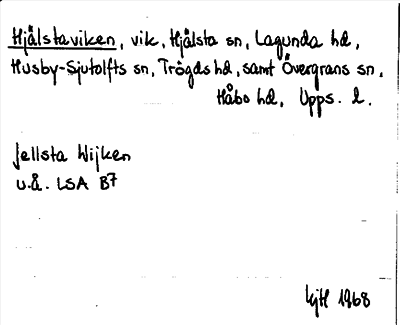 Hjälstaviken, vik, Hjälsta sn, Lagunda hd,
Husby-Sjutolfts sn, Trögds hd, samt Övergrans sn,
Håbo hd, Upps. l.
Jellsta Wijken
u.å. LSA B7
1968